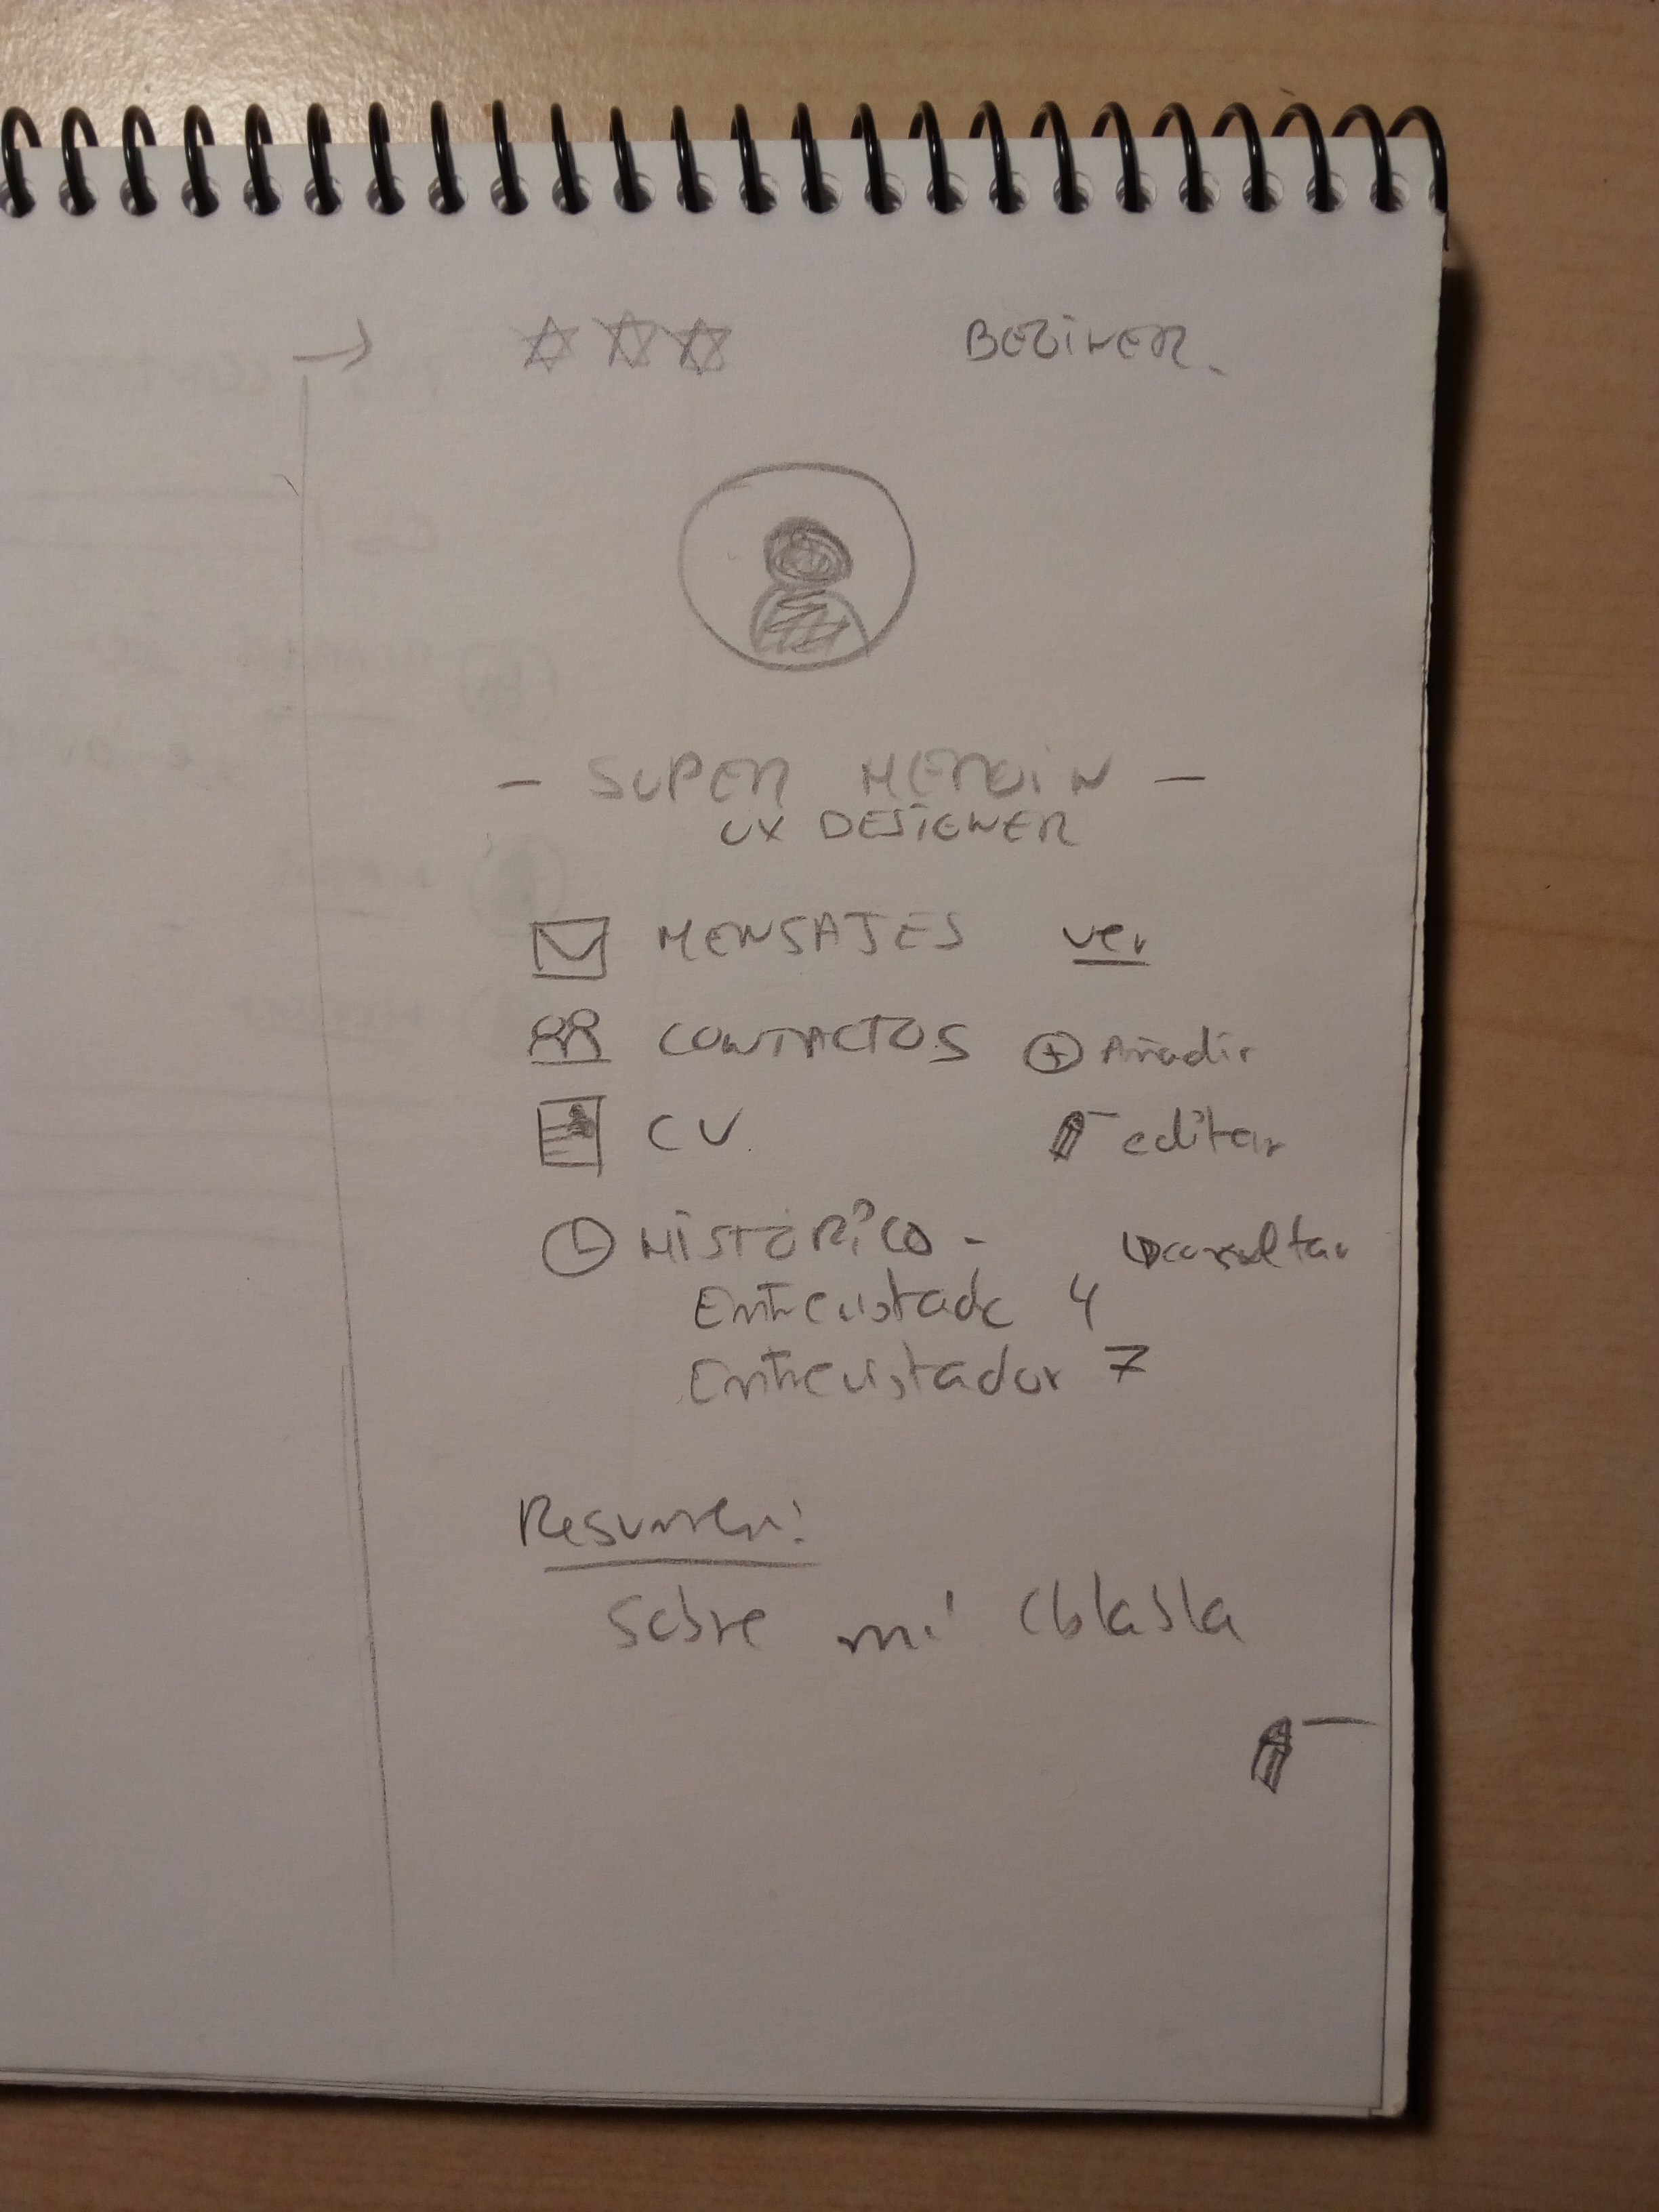 BEGINER.
- SUPER HEROIN -
UX DESIGNER
MENSAJES ver
CONTACTOS + Añadir
CV. editar
HISTÓRICO - consultar
Entrevistado 4
Entrevistador 7
Resumen:
Sobre mí (blabla